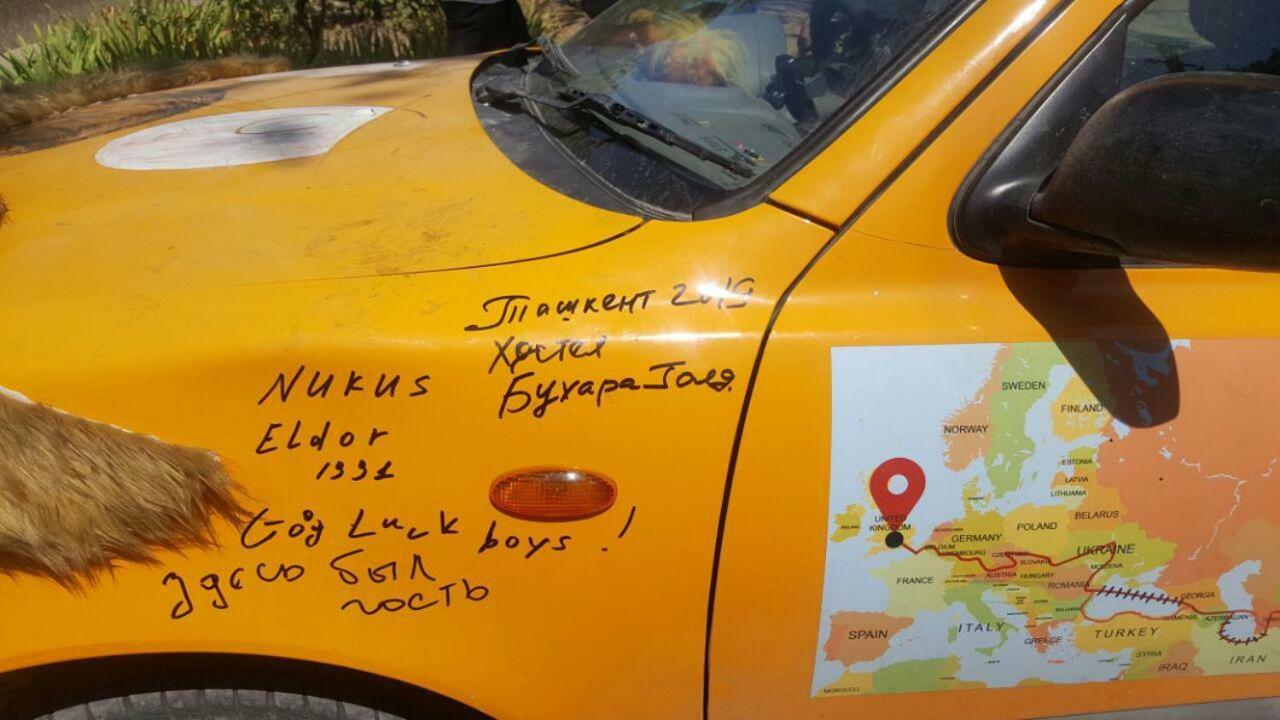 Ташкент 2019
Хостел
Бухара
NUKUS
Eldor
1991
Luck boys !
Здесь был
гость
SWEDEN
FINLAND
NORWAY
ESTONIA
LATVIA
LITHUANIA
IRELAND
UNITED
KINGDOM
BELARUS
POLAND
GERMANY
BELGIUM
UKRAINE
SLOVAKIA
MOLDOVA
FRANCE
AUSTRIA
HUNGARY
ROMANIA
GEORGIA
BULGARIA
ITALY
TURKEY
ARMENIA
AZERBAIJAN
SPAIN
GREECE
SYRIA
IRAQ
IRAN
MOROCCO